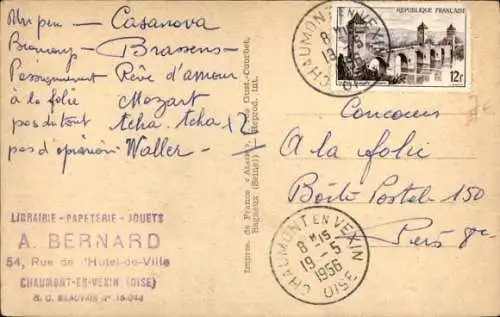 Un peu - Casanova
Beaucoup - Brassens
Passionnement Rêve d'amour
à la folie Mozart
pas du tout tcha. tcha
pas d'opinion Waller -
LIBRAIRIE - PAPETERIE - JOUETS
A. BERNARD
54, Rue de l'Hotel-de-Ville
CHAUMONT-EN-VEXIN (OISE)
R. C. BEAUVAIS Nº 15.044
Imprim. de France
Bagneux (Seine) Reprod. Int.
CHAUMONT EN VEXIN
OISE
REPUBLIQUE FRANÇAISE
12f
Concours
A la folie
Boîte Postale 150
Paris
CHAUMONT EN VEXIN
8 H15
19 - 5
1956
OISE